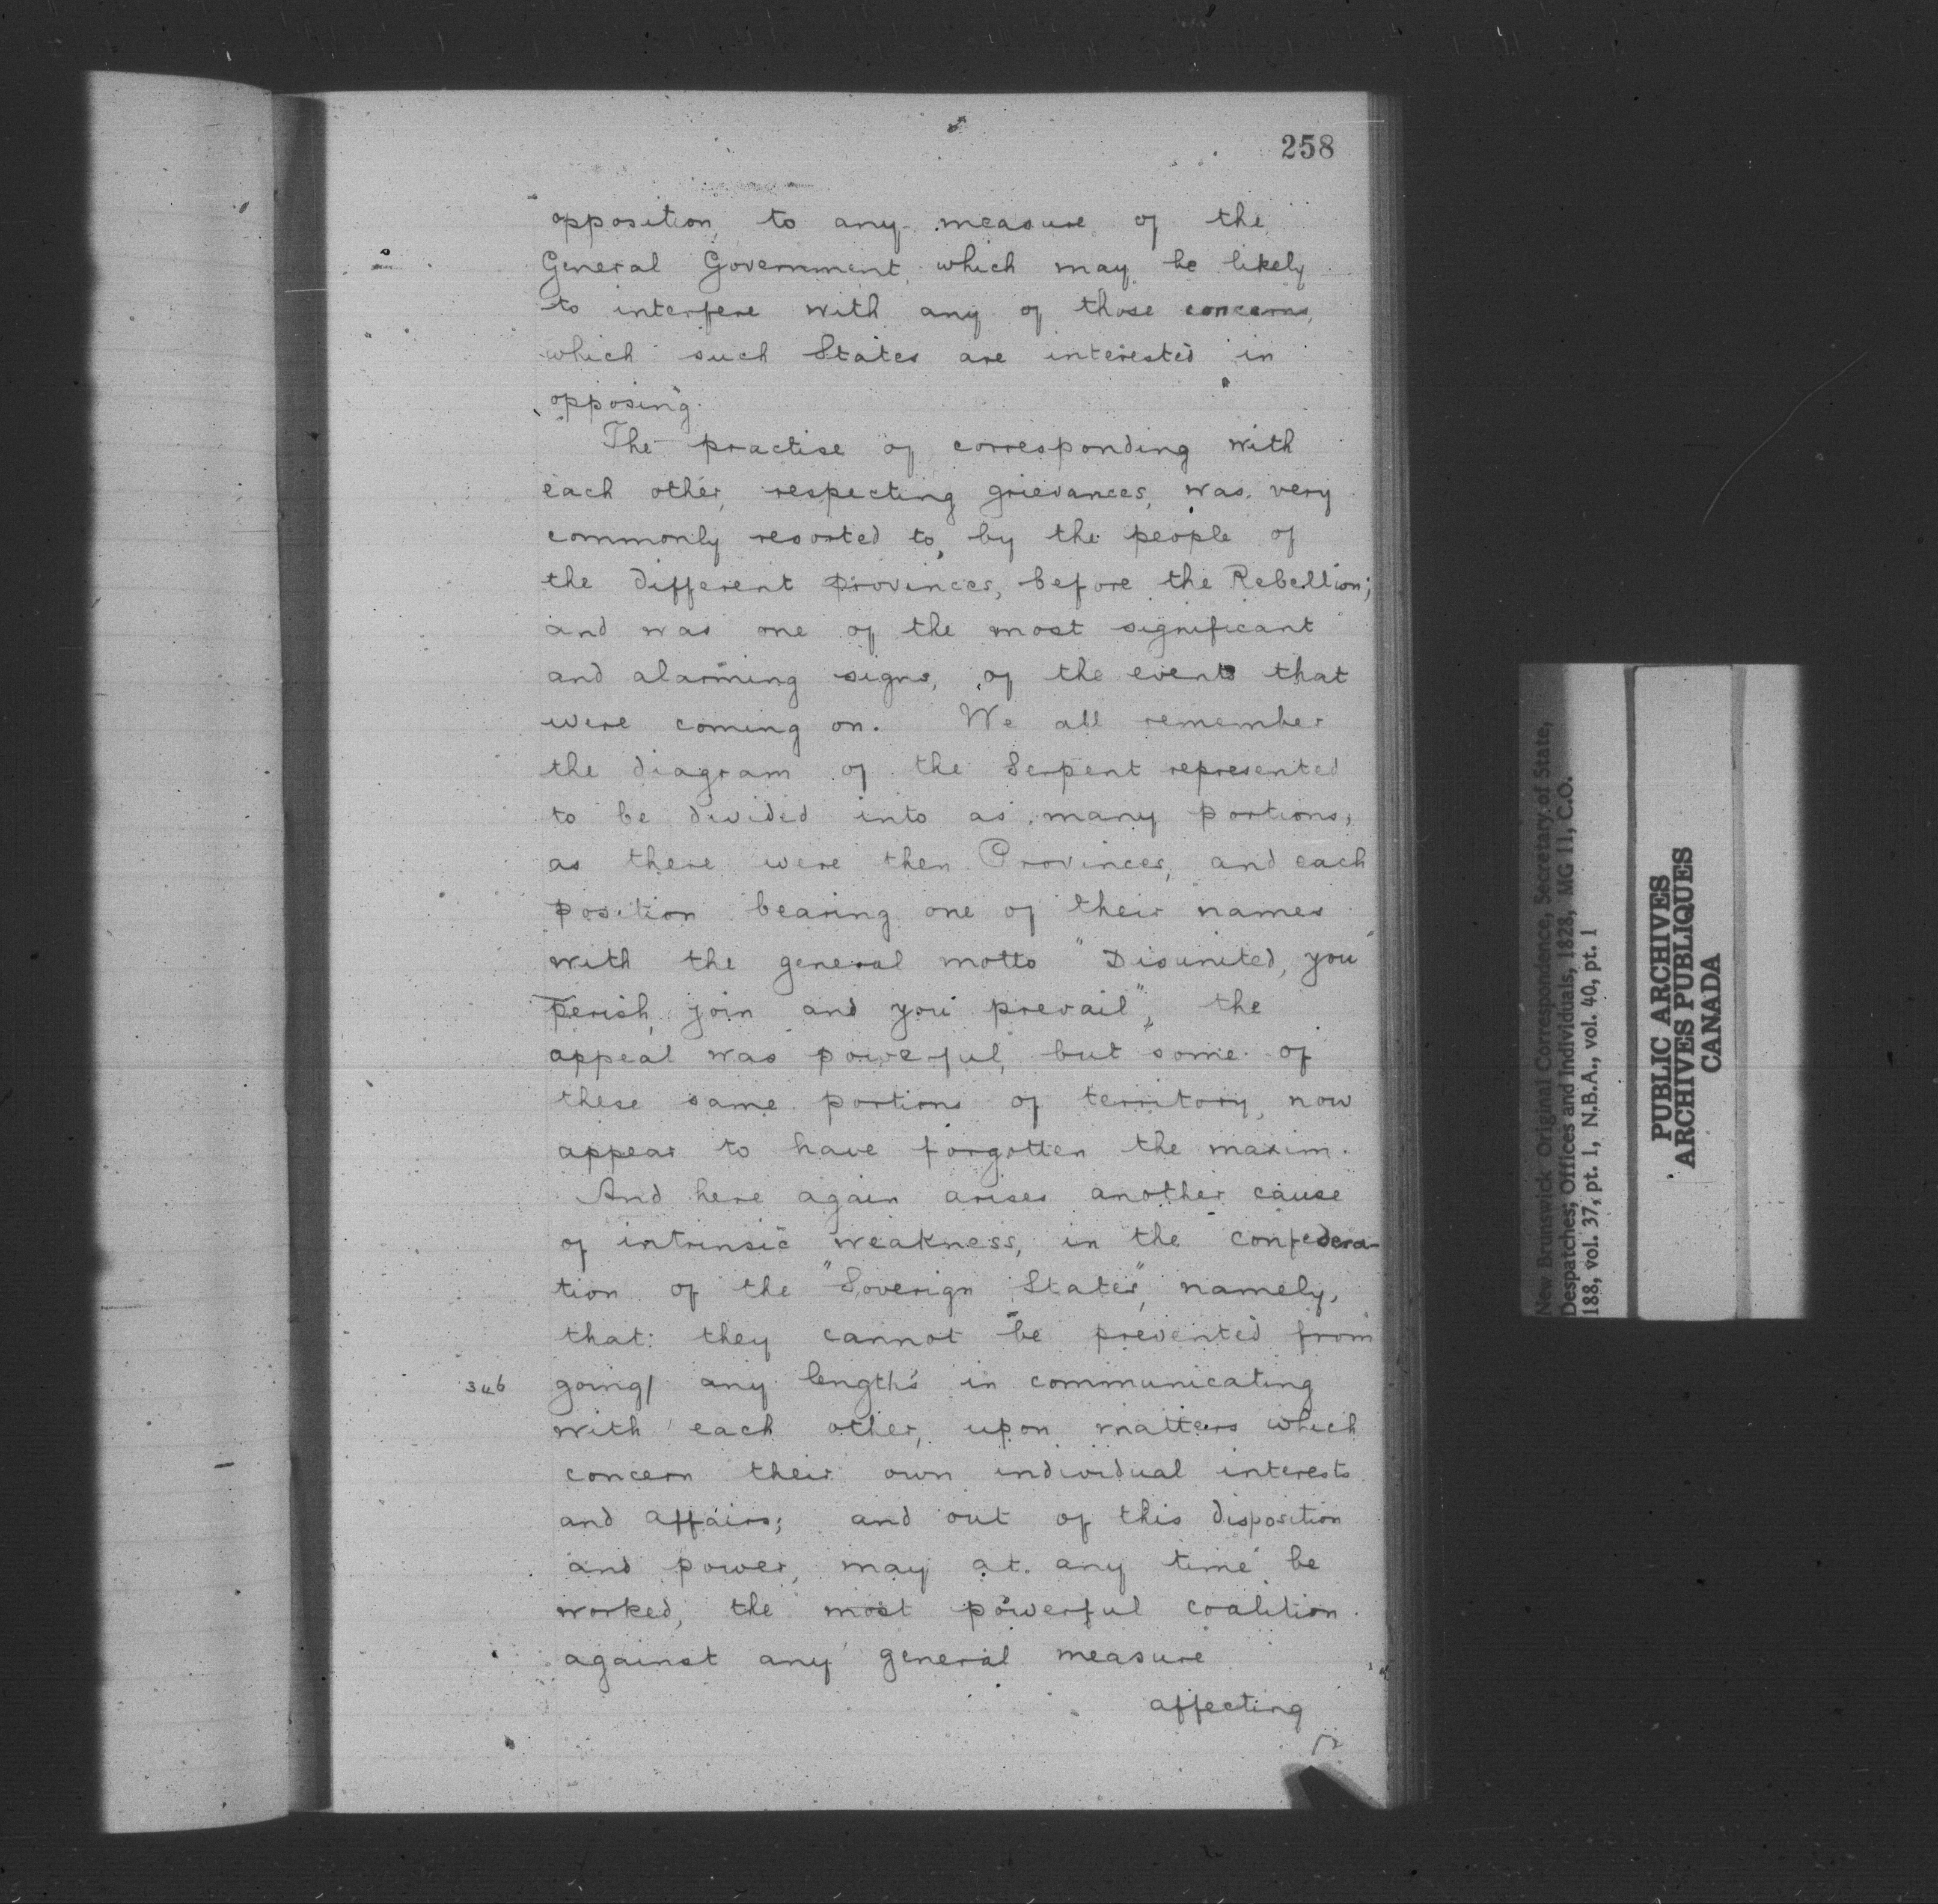 258
opposition, to any measure of the
General Government which may be likely
to interfere with any of those concerns,
which such States are interested in
opposing.
The practise of corresponding with
each other, respecting grievances, was very
commonly resorted to, by the people of
the different Provinces, before the Rebellion;
and was one of the most significant
and alarming signs, of the events that
were coming on. We all remember
the diagram of the Serpent represented
to be divided into as many portions,
as there were then Provinces, and each
position bearing one of their names
with the general motto "Disunited, you
perish, join and you prevail", the
appeal was powerful, but some of
these same portions of territory, now
appear to have forgotten the maxim.
And here again arises another cause
of intrinsic weakness, in the confedera-
tion of the "Soverign States", namely,
that they cannot be prevented from
346 going/ any lengths in communicating
with each other, upon matters which
concern their own individual interests
and affairs; and out of this disposition
and power, may at any time be
worked, the most powerful coalition
against any general measure
affecting
New Brunswick Original Correspondence, Secretary of State,
Despatches; Offices and Individuals, 1828, MG 11, C.O.
188, vol. 37, pt. 1, N.B.A., vol. 40, pt. 1
PUBLIC ARCHIVES
ARCHIVES PUBLIQUES
CANADA